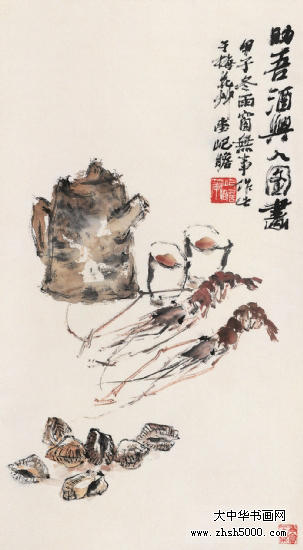 助吾酒興入圖畫
甲子冬雨窗無事作此
于梅花艸堂屺瞻
大中华书画网
www.zhsh5000.com